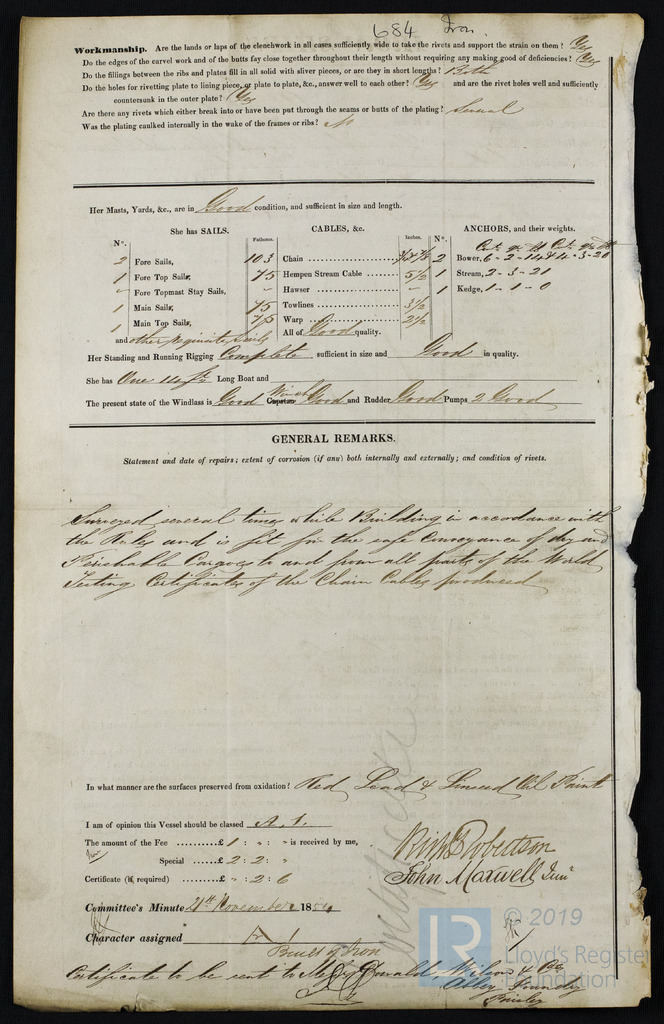 684 Iron.
Workmanship. Are the lands or laps of the clenchwork in all cases sufficiently wide to take the rivets and support the strain on them? Yes
Do the edges of the carvel work and of the butts fay close together throughout their length without requiring any making good of deficiencies? Yes
Do the fillings between the ribs and plates fill in all solid with sliver pieces, or are they in short lengths? Both
Do the holes for rivetting plate to lining piece, or plate to plate, &c., answer well to each other? Yes and are the rivet holes well and sufficiently
countersunk in the outer plate? Yes
Are there any rivets which either break into or have been put through the seams or butts of the plating? Several
Was the plating caulked internally in the wake of the frames or ribs? No
Her Masts, Yards, &c., are in Good condition, and sufficient in size and length.
She has SAILS. CABLES, &c. ANCHORS, and their weights.
N°. Fathoms. Inches. N°.
2 Fore Sails, 103 Chain 2 Bower, 6-2-14 & 4-3-20
1 Fore Top Sails, 75 Hempen Stream Cable 5 1/2 1 Stream, 2-3-21
" Fore Topmast Stay Sails, " Hawser " 1 Kedge, 1-1-0
1 Main Sails, 75 Towlines 3 1/2
1 Main Top Sails, 75 Warp 2 1/2
and other requisite Sails All of Good quality.
Her Standing and Running Rigging Complete sufficient in size and Good in quality.
She has One 14 ft Long Boat and
The present state of the Windlass is Good Capstan Winch Good and Rudder Good Pumps 2 Good
GENERAL REMARKS.
Statement and date of repairs; extent of corrosion (if any) both internally and externally; and condition of rivets.
Surveyed several times while Building in accordance with
the Rules and is fit for the safe Conveyance of dry and
Perishable Cargoes to and from all parts of the World
Testing Certificates of the Chain Cables produced
In what manner are the surfaces preserved from oxidation? Red Lead & Linseed Oil Paint
I am of opinion this Vessel should be classed A.1.
The amount of the Fee £ 1 : " : " is received by me,
Special £ 2 : 2 : "
Certificate (if required) £ " : 2 : 6
Richd Robertson
John Maxwell Junr
Committee's Minute 21st November 1854
Character assigned A 1
Built of Iron
Certificate to be sent to Messrs Donald Wilson & Co
Abbey Foundry
Paisley
© 2019
LR Lloyd's Register
Foundation